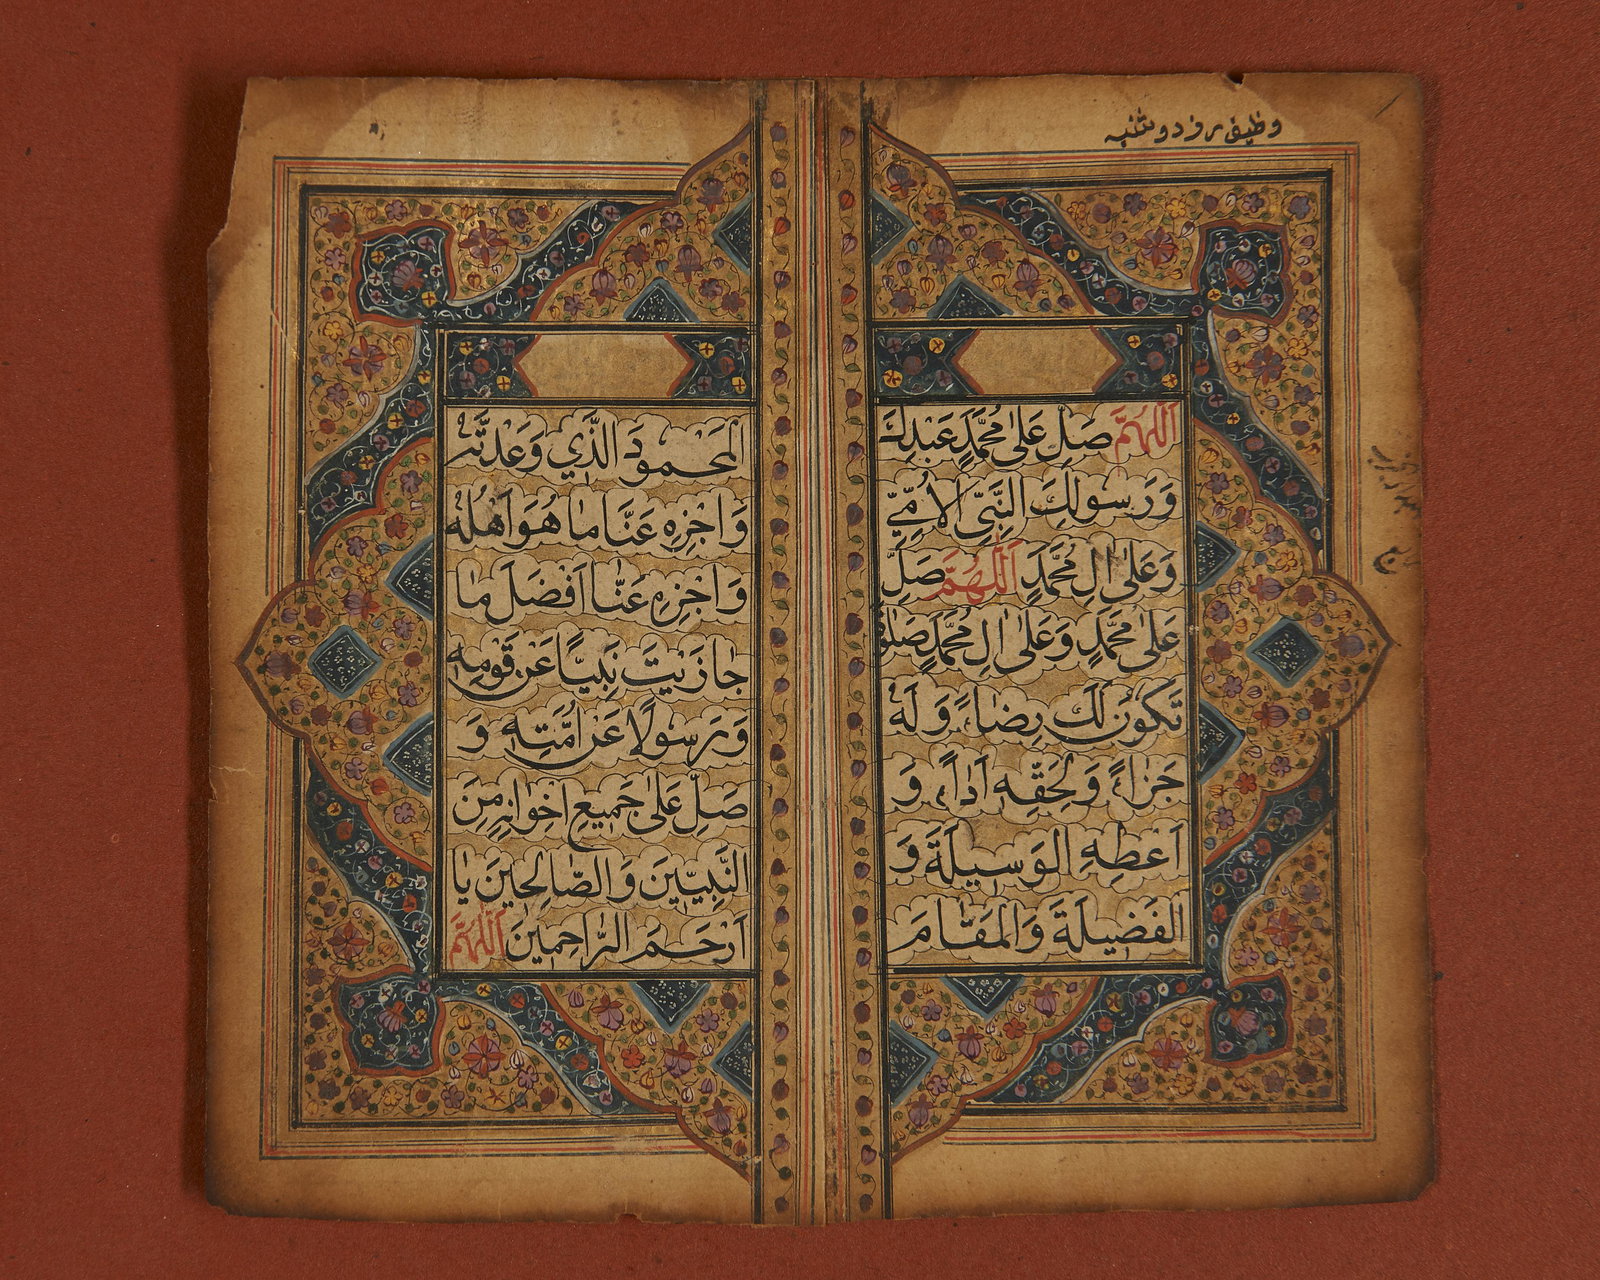 وظیفۀ روز دوشنبه
اَللّٰهُمَّ صَلِّ عَلىٰ مُحَمَّدٍ عَبْدِكَ
وَرَسُولِكَ النَّبِيِّ الْاُمِّيِّ
وَعَلىٰ اٰلِ مُحَمَّدٍ اَللّٰهُمَّ صَلِّ
عَلىٰ مُحَمَّدٍ وَعَلىٰ اٰلِ مُحَمَّدٍ صَلٰوةً
تَكُوْنُ لَكَ رِضَاءً وَلَهُ
جَزَاءً وَلِحَقِّهِ اَدَاءً وَ
اَعْطِهِ الْوَسِيلَةَ وَ
الْفَضِيلَةَ وَالْمَقَامَ
الْمَحْمُودَ الَّذِي وَعَدْتَّهُ
وَاجْزِهِ عَنَّا مَا هُوَ اَهْلُهُ
وَاجْزِهِ عَنَّا اَفْضَلَ مَا
جَازَيْتَ نَبِيًّا عَنْ قَوْمِهِ
وَرَسُولًا عَنْ اُمَّتِهِ وَ
صَلِّ عَلىٰ جَمِيعِ اِخْوَانِهِ مِنَ
النَّبِيِّينَ وَالصَّالِحِينَ يَا
اَرْحَمَ الرَّاحِمِينَ اَللّٰهُمَّ